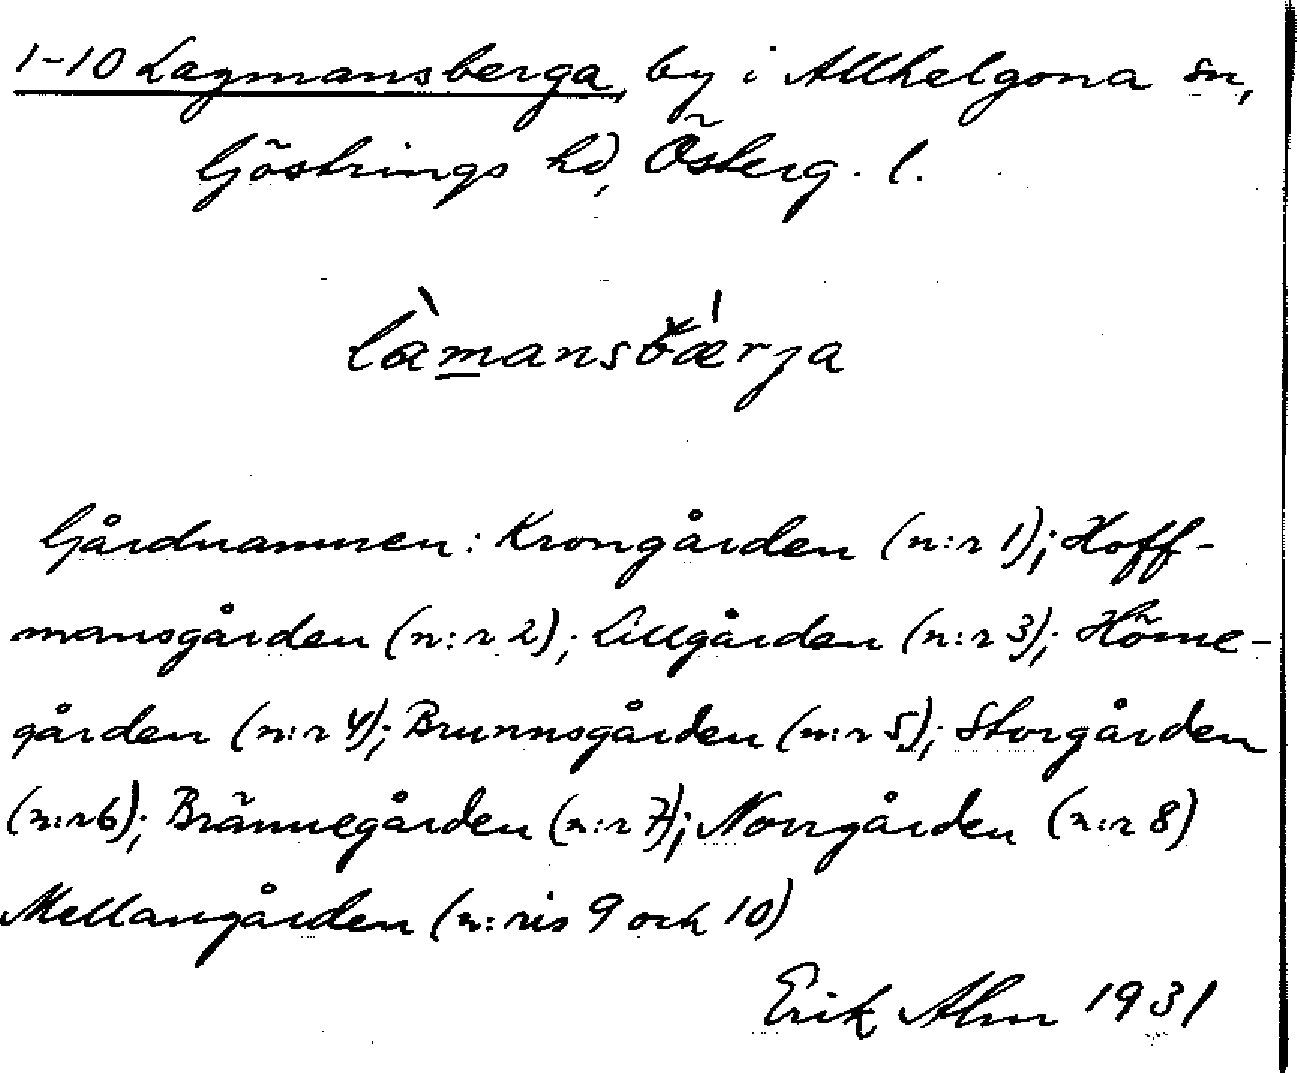 1-10 Lagmansberga, by i Allhelgona sn,
Göstrings hd, Österg. l.
làmansbǽrja
Gårdnamnen: Krongården (n:r 1); Hoff-
mansgården (n:r 2); Lillgården (n:r 3); Höme-
gården (n:r 4); Brunnsgården (n:r 5); Storgården
(n:r 6); Brännegården (n:r 7); Norrgården (n:r 8)
Mellangården (n:ris 9 och 10)
Erik Alm 1931